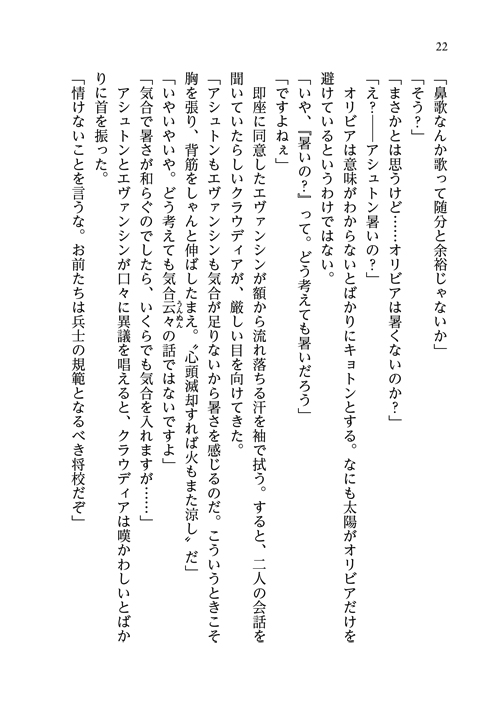 22
「鼻歌なんか歌って随分と余裕じゃないか」
「そう?」
「まさかとは思うけど……オリビアは暑くないのか?」
「え?――アシュトン暑いの?」
オリビアは意味がわからないとばかりにキョトンとする。なにも太陽がオリビアだけを
避けているというわけではない。
「いや、『暑いの?』って。どう考えても暑いだろう」
「ですよねぇ」
即座に同意したエヴァンシンが額から流れ落ちる汗を袖で拭う。すると、二人の会話を
聞いていたらしいクラウディアが、厳しい目を向けてきた。
「アシュトンもエヴァンシンも気合が足りないから暑さを感じるのだ。こういうときこそ
胸を張り、背筋をしゃんと伸ばしたまえ。〝心頭滅却すれば火もまた涼し〟だ」
「いやいやいや。どう考えても気合云々うんぬんの話ではないですよ」
「気合で暑さが和らぐのでしたら、いくらでも気合を入れますが……」
アシュトンとエヴァンシンが口々に異議を唱えると、クラウディアは嘆かわしいとばか
りに首を振った。
「情けないことを言うな。お前たちは兵士の規範となるべき将校だぞ」